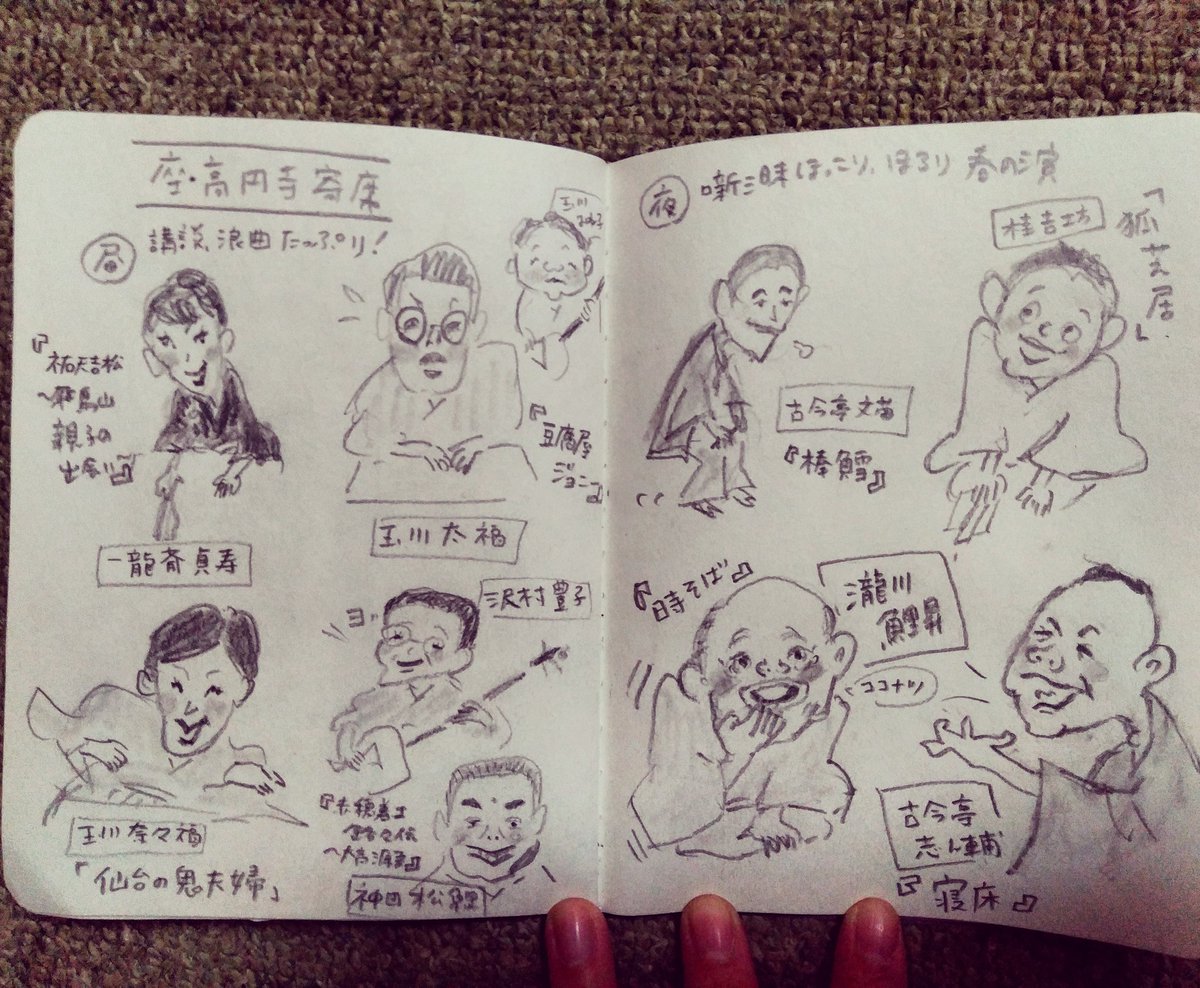 座・高円寺寄席
昼
講談、浪曲たっぷり!
『祐天吉松
〜飛鳥山
親子の
出会い』
一龍斎貞寿
玉川
『豆腐屋
ジョニー』
玉川太福
玉川奈々福
「仙台の鬼夫婦」
ヨッ
沢村豊子
『赤穂義士
〜大高源吾』
神田松鯉
夜
噺三昧ほっこり、ほろり 春の演
古今亭文菊
『棒鱈』
桂吉坊
「狐芝居」
『時そば』
瀧川
鯉昇
ココナツ
古今亭
志ん輔
『寝床』